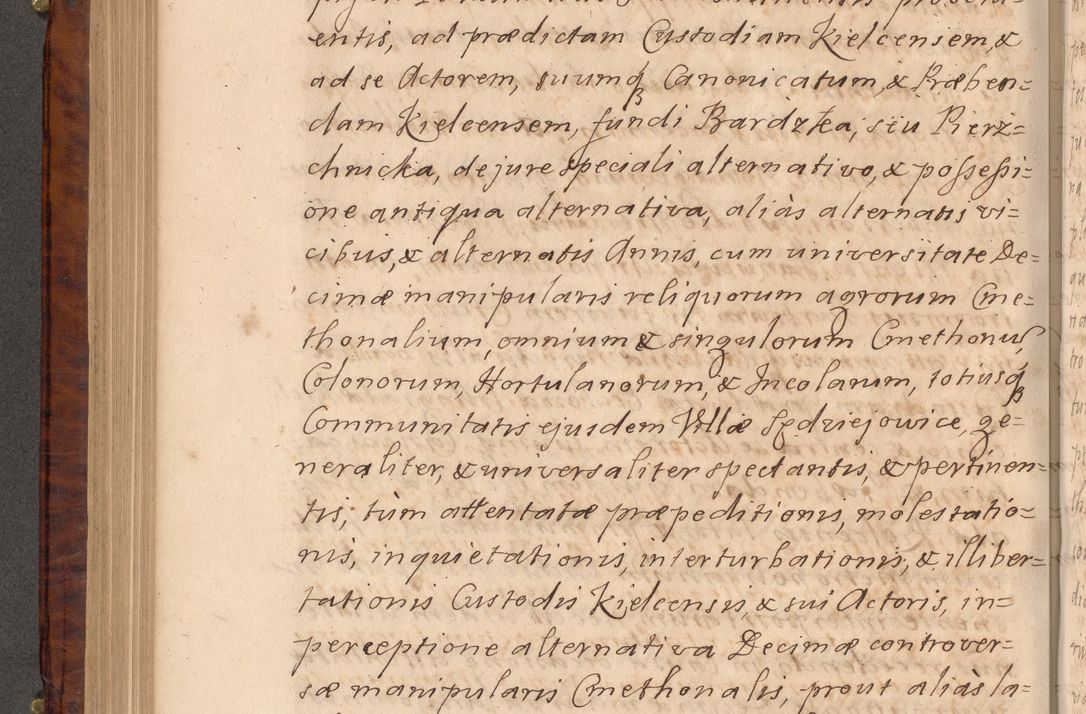 entis, ad prædictam Custodiam Kielcensem, &
ad se Actorem, suumqꝫ Canonicatum, & Præben=
dam Kielcensem, fundi Bardzka, seu Pierz=
chnicka, de jure speciali alternativo, & possessi=
one antiqua alternativa, aliàs alternatis vi=
cibus, & alternatis Annis, cum universitate De=
cimæ manipularis reliquorum agrorum Cme=
thonalium, omnium & singulorum Cmethonũ,
Colonorum, Hortulanorum, & Incolarum, totiusqꝫ
Communitatis ejusdem Villæ Sędziejowice, ge=
neraliter, & universaliter spectantis, & pertinen=
tis, tùm attentatæ præpeditionis, molestatio=
nis, inquietationis, interturbationis, & illiber=
tationis Custodis Kielcensis, & sui Actoris, in=
perceptione alternativa Decimæ controver=
sæ manipularis Cmethonalis, prout aliàs la=